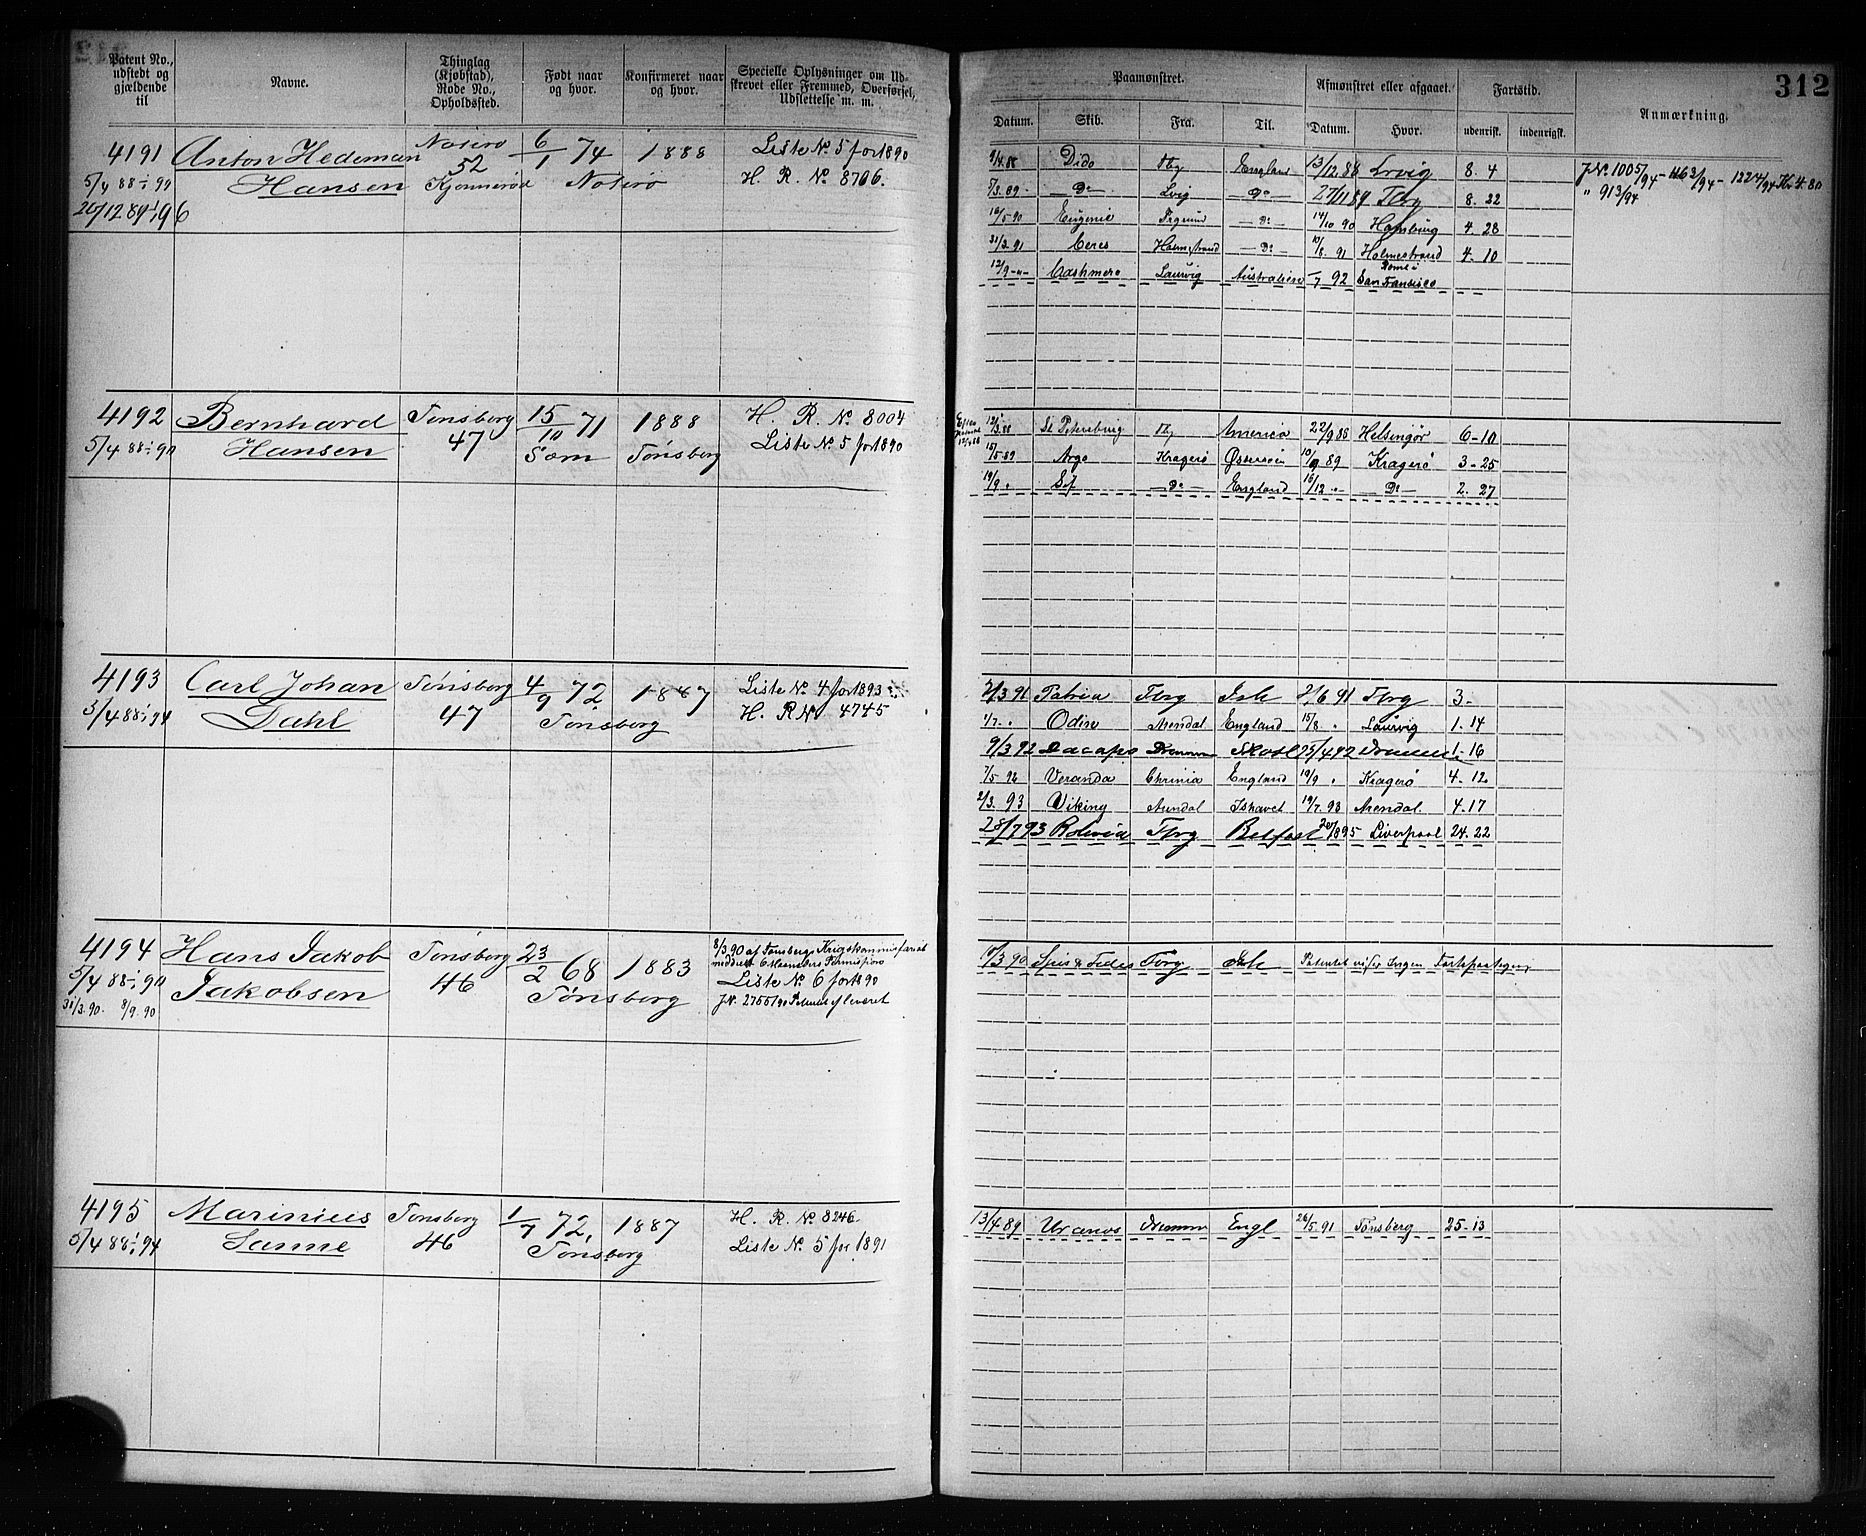 312
Patent No., udstedt og gjældende til
Navne.
Thinglag (Kjøbstad), Rode No., Opholdssted.
Født naar og hvor.
Konfirmeret naar og hvor.
Specielle Oplysninger om Udskrevet eller Fremmed, Overførsel, Udslettelse m. m.
Paamønstret.
Afmønstret eller afgaaet.
Fartstid.
Anmærkning.
Datum. Skib. Fra. Til. Datum. Hvor. udenrisk. indenrigsk.
4191 Anton Hedeman Nøterø 6/1 74 1888 Liste No. 5 for 1890
5/4 88 Hansen 52 Kjønnerød Nøterø H. R. No. 8706.
20/12 89 96
Dido Tbg England 13/12 88 Lrvig 8. 4
Do Lvig Do 27/11 89 Tbrg 8. 22
16/5 90 Eugenie Do 14/10 90 Hamburg 4. 28
31/3 91 Ceres Holmestrand Do 91 Holmestrand 4. 10
12/9 Cashmere Laurvig Australien 7 92 Rømt i San Fransisco
J.No. 1005/94 - 1163/94 - 1224/94 Kr. 4.80
" 913/94
4192 Bernhard Tønsberg 15/10 71 1888 H. R. No. 8004
5/4 88 90 Hansen 47 Søm Tønsberg Liste No. 5 for 1890
12/3 88 St Petersburg Tbg America 22/9 88 Helsingør 6-10
15/5 89 Argo Kragerø Østersøen 89 Kragerø 3-25
19/9 Do England 16/12 Do 2. 27
4193 Carl Johan Tønsberg 4/9 72 1887 Liste No. 4 for 1893
5/4 88 94 Dahl 47 Tønsberg H. R. No. 4745
2/3 91 Patria Tbrg Ish 2/6 91 Tbrg 3-
1/7 Odin Arendal England 15/8 Laurvig 1-14
9/3 92 Dacapo Dramm Skotl 25/4 92 Drammen 1-16
7/5 92 Veranda Chrinia England 19/9 Kragerø 4. 12
2/3 93 Viking Arendal Ishavet 19/7 93 Arendal 4. 17
28/7 93 Bolivia Tbrg Belfast 20/8 95 Liverpool 24. 22
4194 Hans Jakob Tønsberg 23/2 68 1883 8/3 90 af Tønsbergs Krigskommissariat
5/4 88 90 Jakobsen 46 Tønsberg Liste No. 6 for 1890
31/3 90 8/9 90 J.N. 2755/90 Patentet afleveret
3 90 Tbrg Ish Patentet viser Ingen
4195 Marinius Tønsberg 1/7 72 1887 H. R. No. 8246
5/4 88 94 Sanne 46 Tønsberg Liste No. 5 for 1891
13/4 89 Uranos Dramm Engl 26/5 91 Tønsberg 25-13